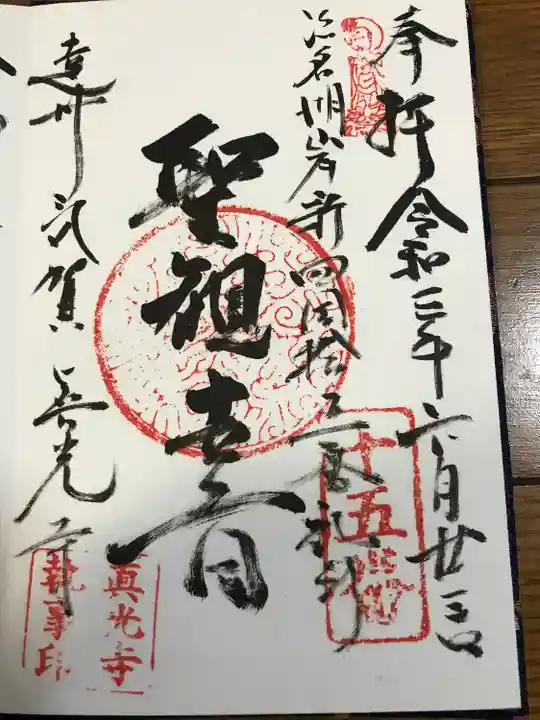 奉拝 令和三年六月廿三日
浜名湖岸新四国拾五番札所
聖観音
遠州気賀 真光寺
十五番
眞光寺
執事印